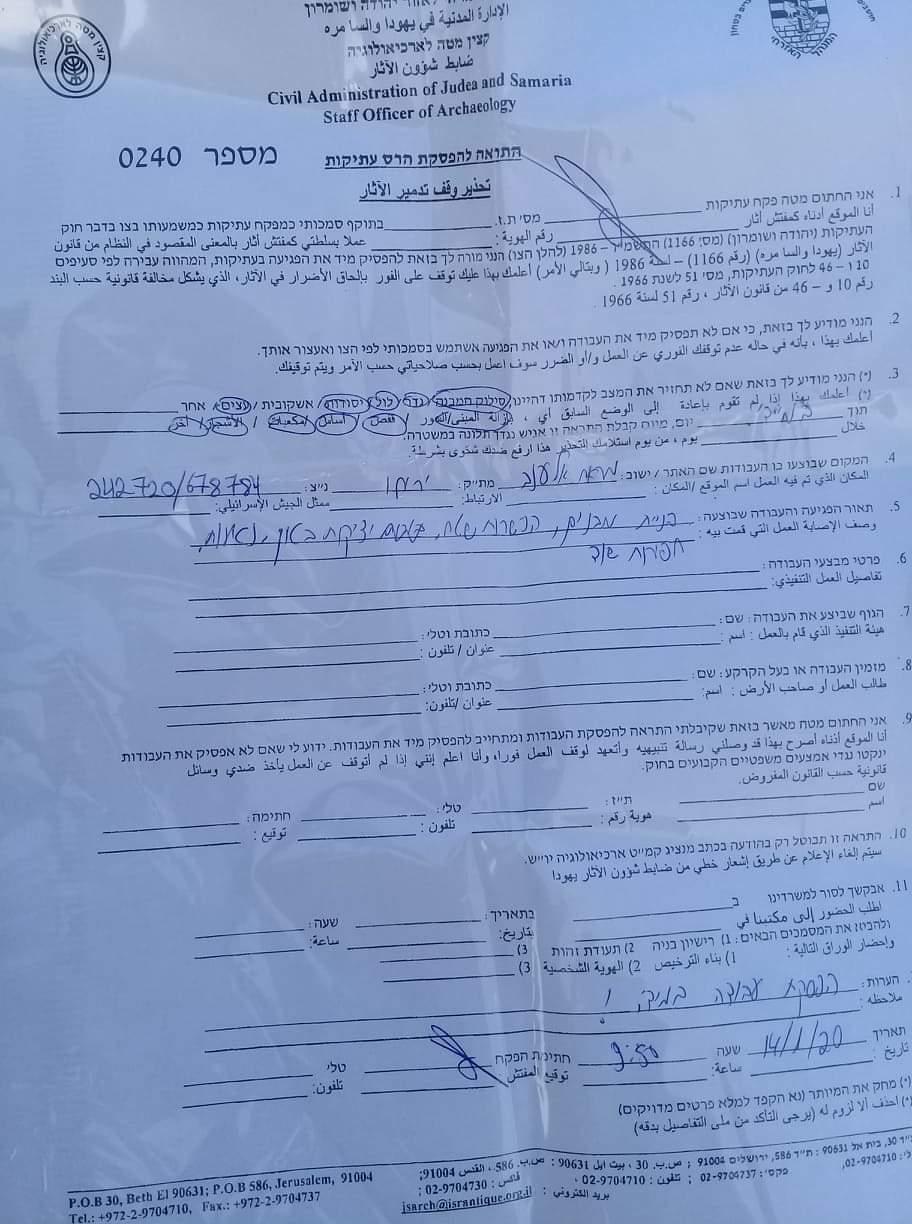 الإدارة المدنية في يهودا والسامره
קצין מטה לארכיאולוגיה
ضابط شؤون الآثار
Civil Administration of Judea and Samaria
Staff Officer of Archaeology
מספר 0240
התראה להפסקת הרס עתיקות
تحذير وقف تدمير الآثار
1. אני החתום מטה פקח עתיקות מס' ת.ז. בתוקף סמכותי כמפקח עתיקות כמשמעותו בצו בדבר חוק
أنا الموقع أدناه كمفتش أثار رقم الهوية : عملا بسلطتي كمفتش أثار بالمعنى المقصود في النظام من قانون
העתיקות (יהודה ושומרון) (מס' 1166) – 1986 (להלן הצו) הנני מורה לך בזאת להפסיק מיד את הפגיעה בעתיקות, המהווה עבירה לפי סעיפים
الآثار (يهودا والسا مره) (رقم 1166) – لسنة 1986 ( ويتالي الأمر) أعلمك بهذا عليك توقف على الفور بإلحاق الأضرار في الآثار، الذي يشكل مخالفة قانونية حسب البند
10 ו – 46 לחוק העתיקות, מס' 51 לשנת 1966 .
رقم 10 و – 46 من قانون الآثار ، رقم 51 لسنة 1966 .
2. הנני מודיע לך בזאת, כי אם לא תפסיק מיד את העבודה ו/או את הפגיעה אשתמש בסמכותי לפי הצו ואעצור אותך.
أعلمك بهذا ، بأنه في حاله عدم توقفك الفوري عن العمل و/أو الضرر سوف اعمل بحسب صلاحياتي حسب الأمر ويتم توقيفك.
3. (*) הנני מודיע לך בזאת שאם לא תחזיר את המצב לקדמותו דהיינו סילוק המבנה / גדר / לול / יסודות / אשקובית / עצים / אחר
(*) أعلمك بهذا إذا لم تقوم بإعادة إلى الوضع السابق أي ، بإزالة المبنى/السور / القفص / أساس / مكعبات / الأشجار / آخر
תוך יום, מיום קבלת התראה זו אגיש נגדך תלונה במשטרה.
خلال يوم ، من يوم استلامك التحذير هذا ارفع ضدك شكوى بشرطة.
4. המקום שבוצעו בו העבודות שם האתר / ישוב : מת"ק : יריחו נ"צ : 242720/678784
المكان الذي تم فيه العمل اسم الموقع /المكان : الارتباط: ممثل الجيش الإسرائيلي:
5. תאור הפגיעה והעבודה שבוצעה : בניית מבנים, הכשרת שטח,
وصف الإصابة العمل التي قمت بيه :
6. פרטי מבצעי העבודה :
تفاصيل العمل التنفيذي:
7. הגוף שביצע את העבודה : שם : כתובת וטלי :
هيئة التنفيذ الذي قام بالعمل : اسم : عنوان / تلفون :
8. מזמין העבודה או בעל הקרקע : שם : כתובת וטלי :
طالب العمل أو صاحب الأرض : اسم: عنوان /تلفون:
9. אני החתום מטה מאשר בזאת שקיבלתי התראה להפסקת העבודות ומתחייב להפסיק מיד את העבודות. ידוע לי שאם לא אפסיק את העבודות
أنا الموقع أدناه أصرح بهذا قد وصلني رسالة تنبيهيه وأتعهد لوقف العمل فورا، وأنا اعلم إنني إذا لم أتوقف عن العمل يأخذ ضدي وسائل
ינקטו נגדי אמצעים משפטיים הקבועים בחוק.
قانونية حسب القانون المفروض.
שם ת"ז : טלי : חתימה :
اسم هوية رقم : تلفون : توقيع :
10. התראה זו תבוטל רק בהודעה בכתב מנציג קמ"ט ארכיאולוגיה יו"ש.
سيتم إلغاء الإعلام عن طريق إشعار خطي من ضابط شؤون الآثار يهودا
11. אבקשך לסור למשרדינו ב בתאריך : שעה :
اطلب الحضور إلى مكتبنا في تاريخ: ساعة:
ולהביא את המסמכים הבאים : 1) רישיון בניה 2) תעודת זהות 3)
وإحضار الوراق التالية : 1) بناء الترخيص 2) الهوية الشخصية 3)
הערות : הפסקת עבודה במיידי !
ملاحظه :
תאריך 14/1/20 שעה 9:50 חתימת הפקח טלי
تاريخ : ساعة: توقيع المفتش تلفون:
(*) מחק את המיותר (נא הקפד למלא פרטים מדויקים)
(*) احذف ألا لزوم له (يرجى التأكد من ملى التفاصيل بدقه)
ת"ד 30, בית אל 90631 : ת"ד 586, ירושלים 91004 ; ص.ب. 30 ، بيت ايل 90631 : ص.ب. 586، القدس 91004;
02-9704710, פקסי: 02-9704737 ; تلفون : 02-9704710 ، فاكس : 02-9704730;
P.O.B 30, Beth El 90631; P.O.B 586, Jerusalem, 91004
Tel.: +972-2-9704710, Fax.: +972-2-9704737
بريد الكتروني : isarch@israntique.org.il